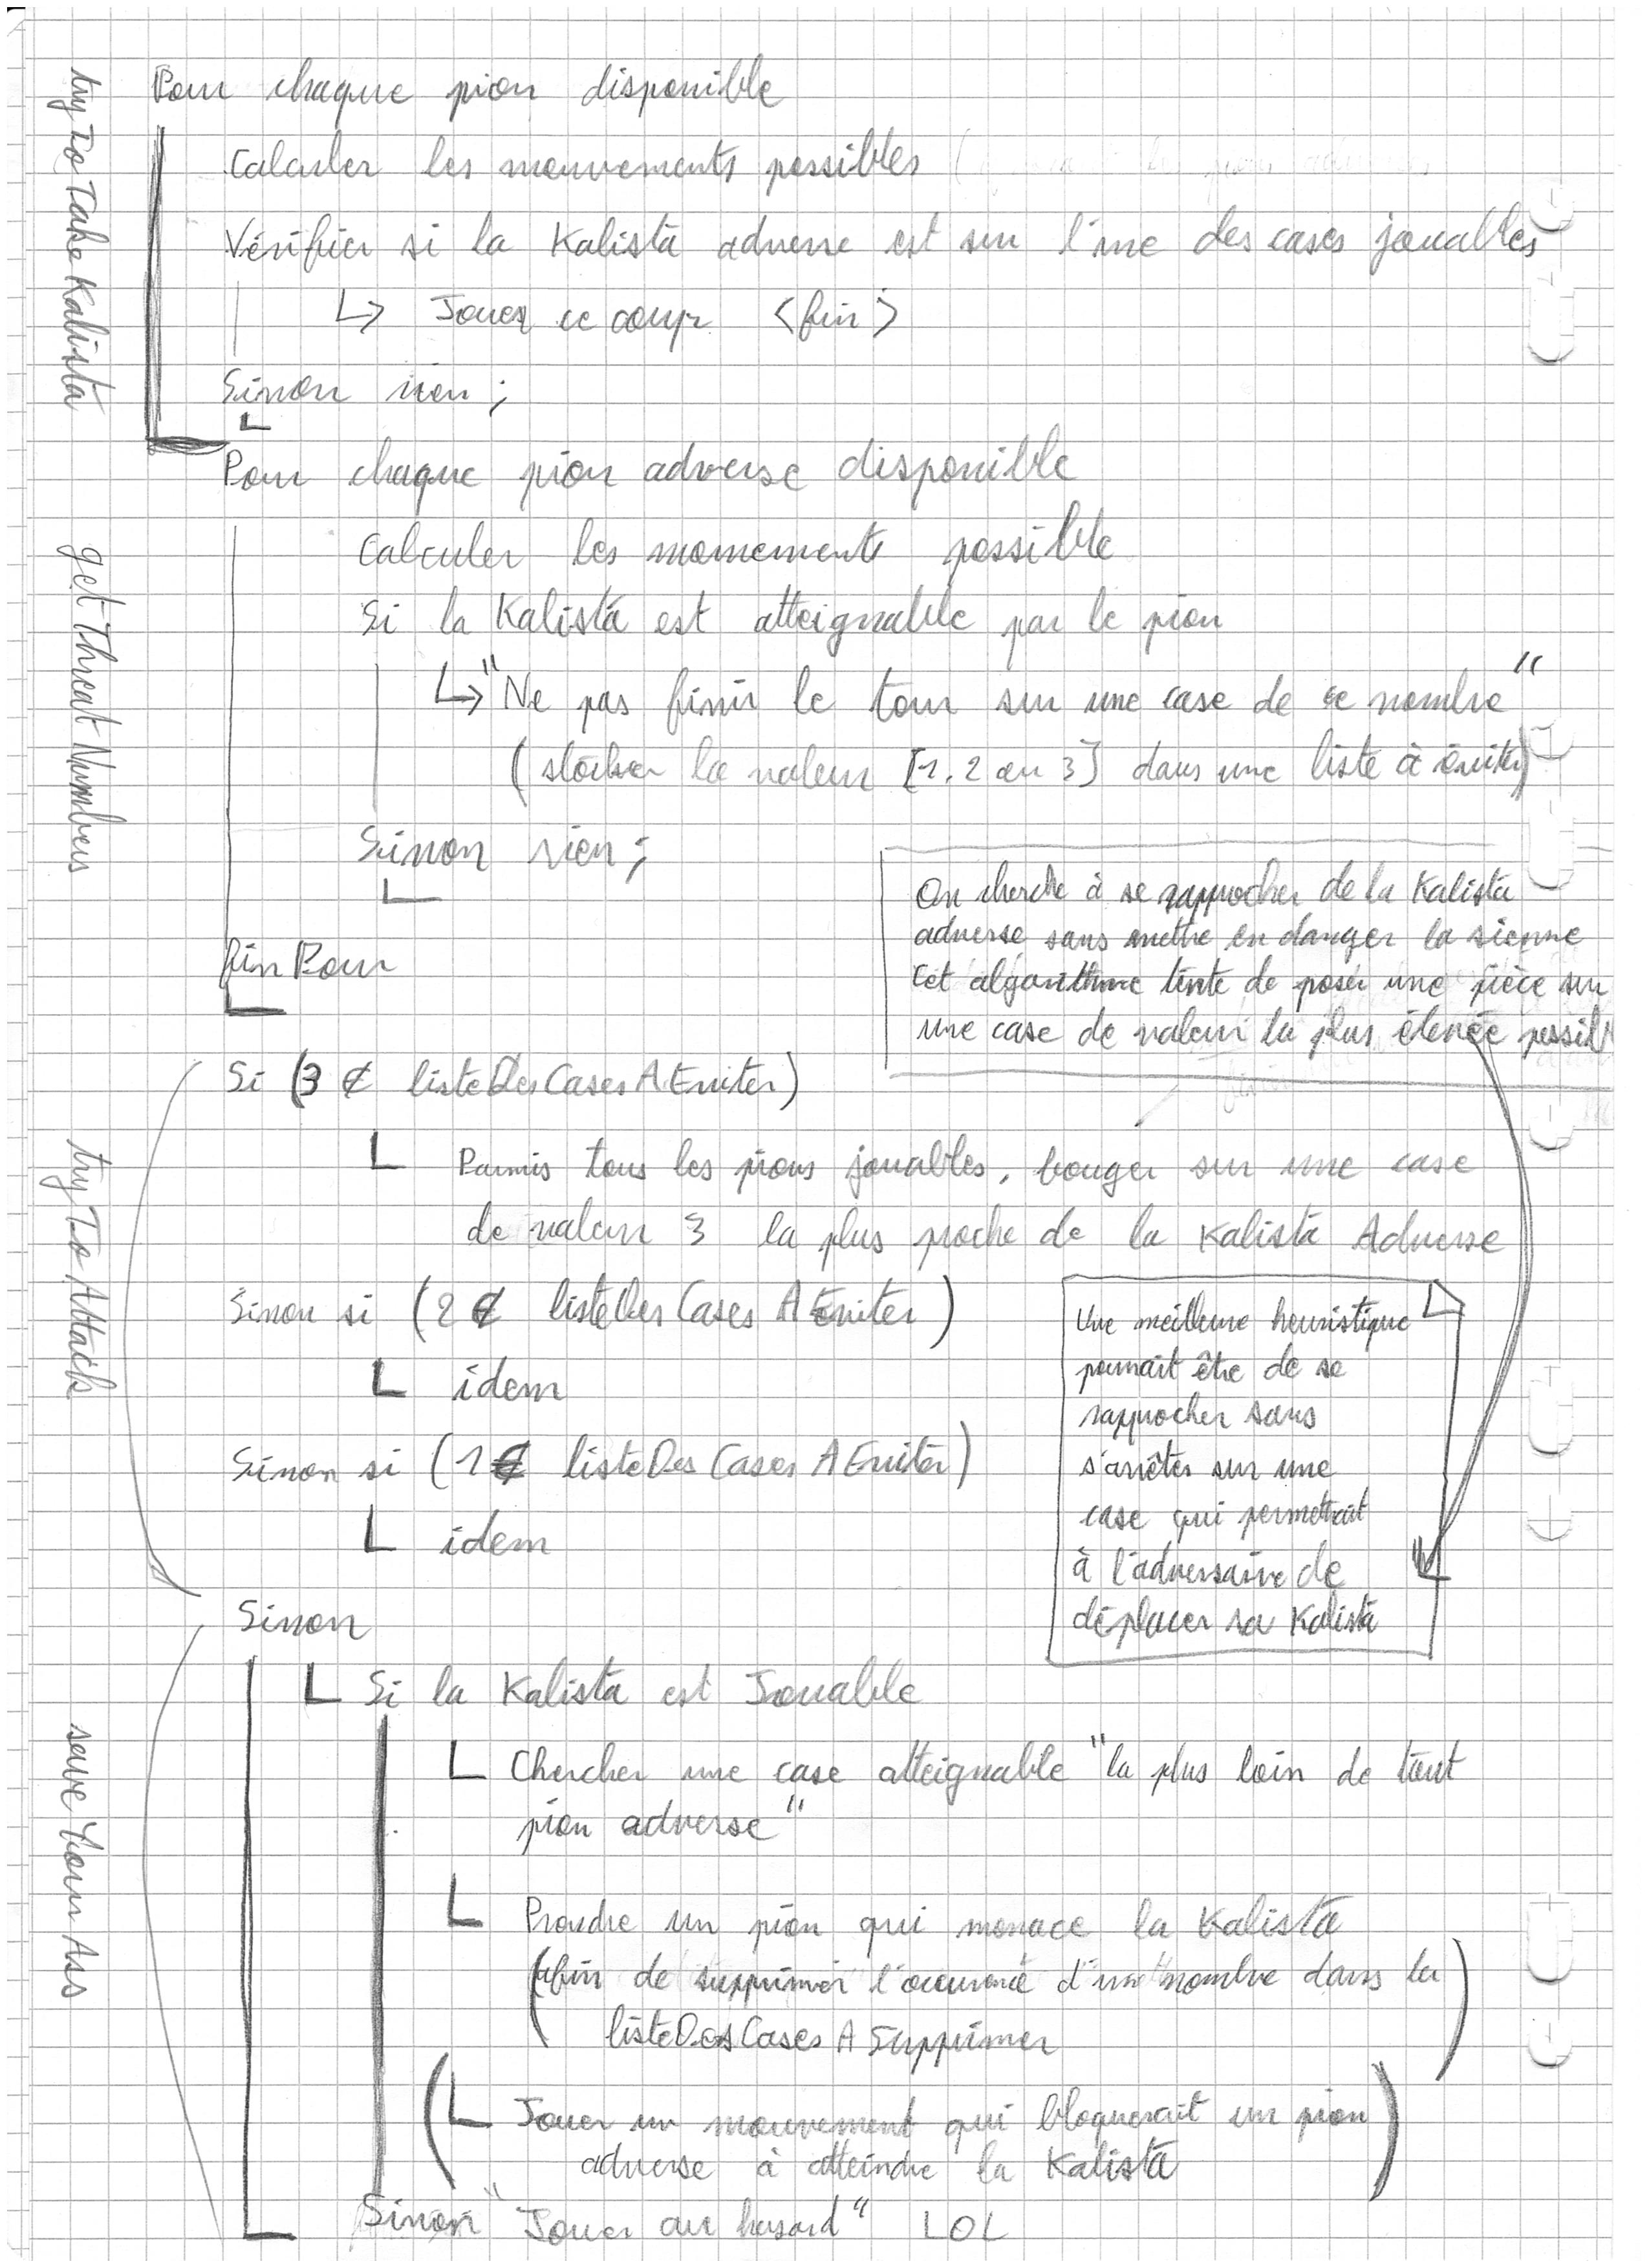 try To Take Kalista
Pour chaque pion disponible
Calculer les mouvements possibles (
Vérifier si la Kalista adverse est sur l'une des cases jouables
↳ Jouer ce coup <fin>
Sinon rien ;
get Threat Numbers
Pour chaque pion adverse disponible
Calculer les mouvements possible
Si la Kalista est atteignable par le pion
↳ "Ne pas finir le tour sur une case de ce nombre"
(stocker la valeur [1, 2 ou 3] dans une liste à éviter)
Sinon rien ;
fin Pour
On cherche à se rapprocher de la Kalista
adverse sans mettre en danger la sienne
Cet algorithme tente de poser une pièce sur
une case de valeur la plus élevée possibl
try To Attack
Si (3 ∉ listeDesCasesAEviter)
Parmis tous les pions jouables, bouger sur une case
de valeur 3 la plus proche de la Kalista Adverse
Sinon si (2 ∉ listeDesCasesAEviter)
idem
Sinon si (1 ∉ listeDesCasesAEviter)
idem
Une meilleure heuristique
pourrait être de se
rapprocher sans
s'arrêter sur une
case qui permettrait
à l'adversaire de
déplacer sa Kalista
save Your Ass
Sinon
Si la Kalista est Jouable
Chercher une case atteignable "la plus loin de tout
pion adverse"
Prendre un pion qui menace la Kalista
(afin de supprimer l'occurence d'un nombre dans la
listeDesCasesASupprimer )
( Jouer un mouvement qui bloquerait un pion
adverse à atteindre la Kalista )
Sinon "Jouer au hasard" LOL